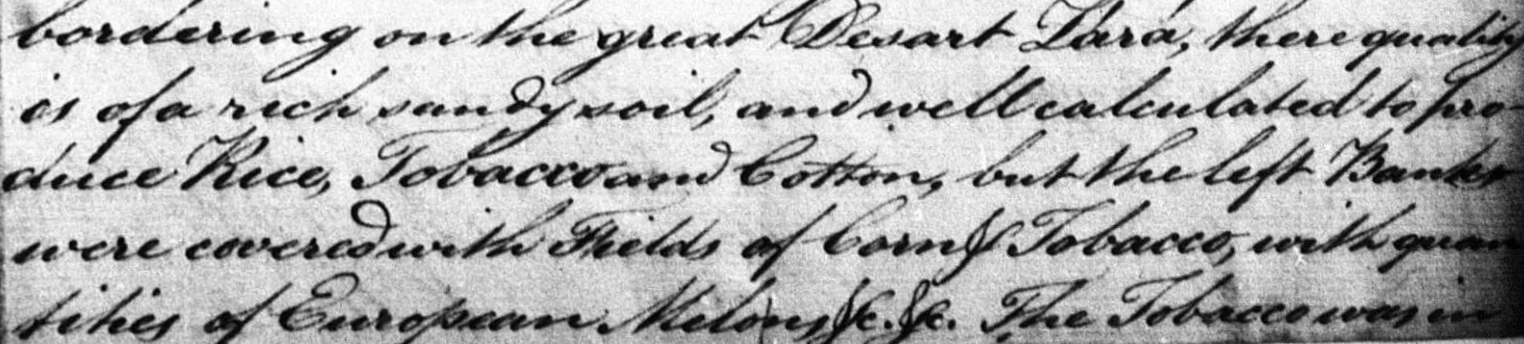 bordering on the great Desart Zârá, there quality
is of a rich sandy soil, and well calculated to pro
duce Rice, Tobacco and Cotton, but the left Banks
were covered with Fields of Corn & Tobacco, with quan
tities of European Melons &c. &c. The Tobacco was in